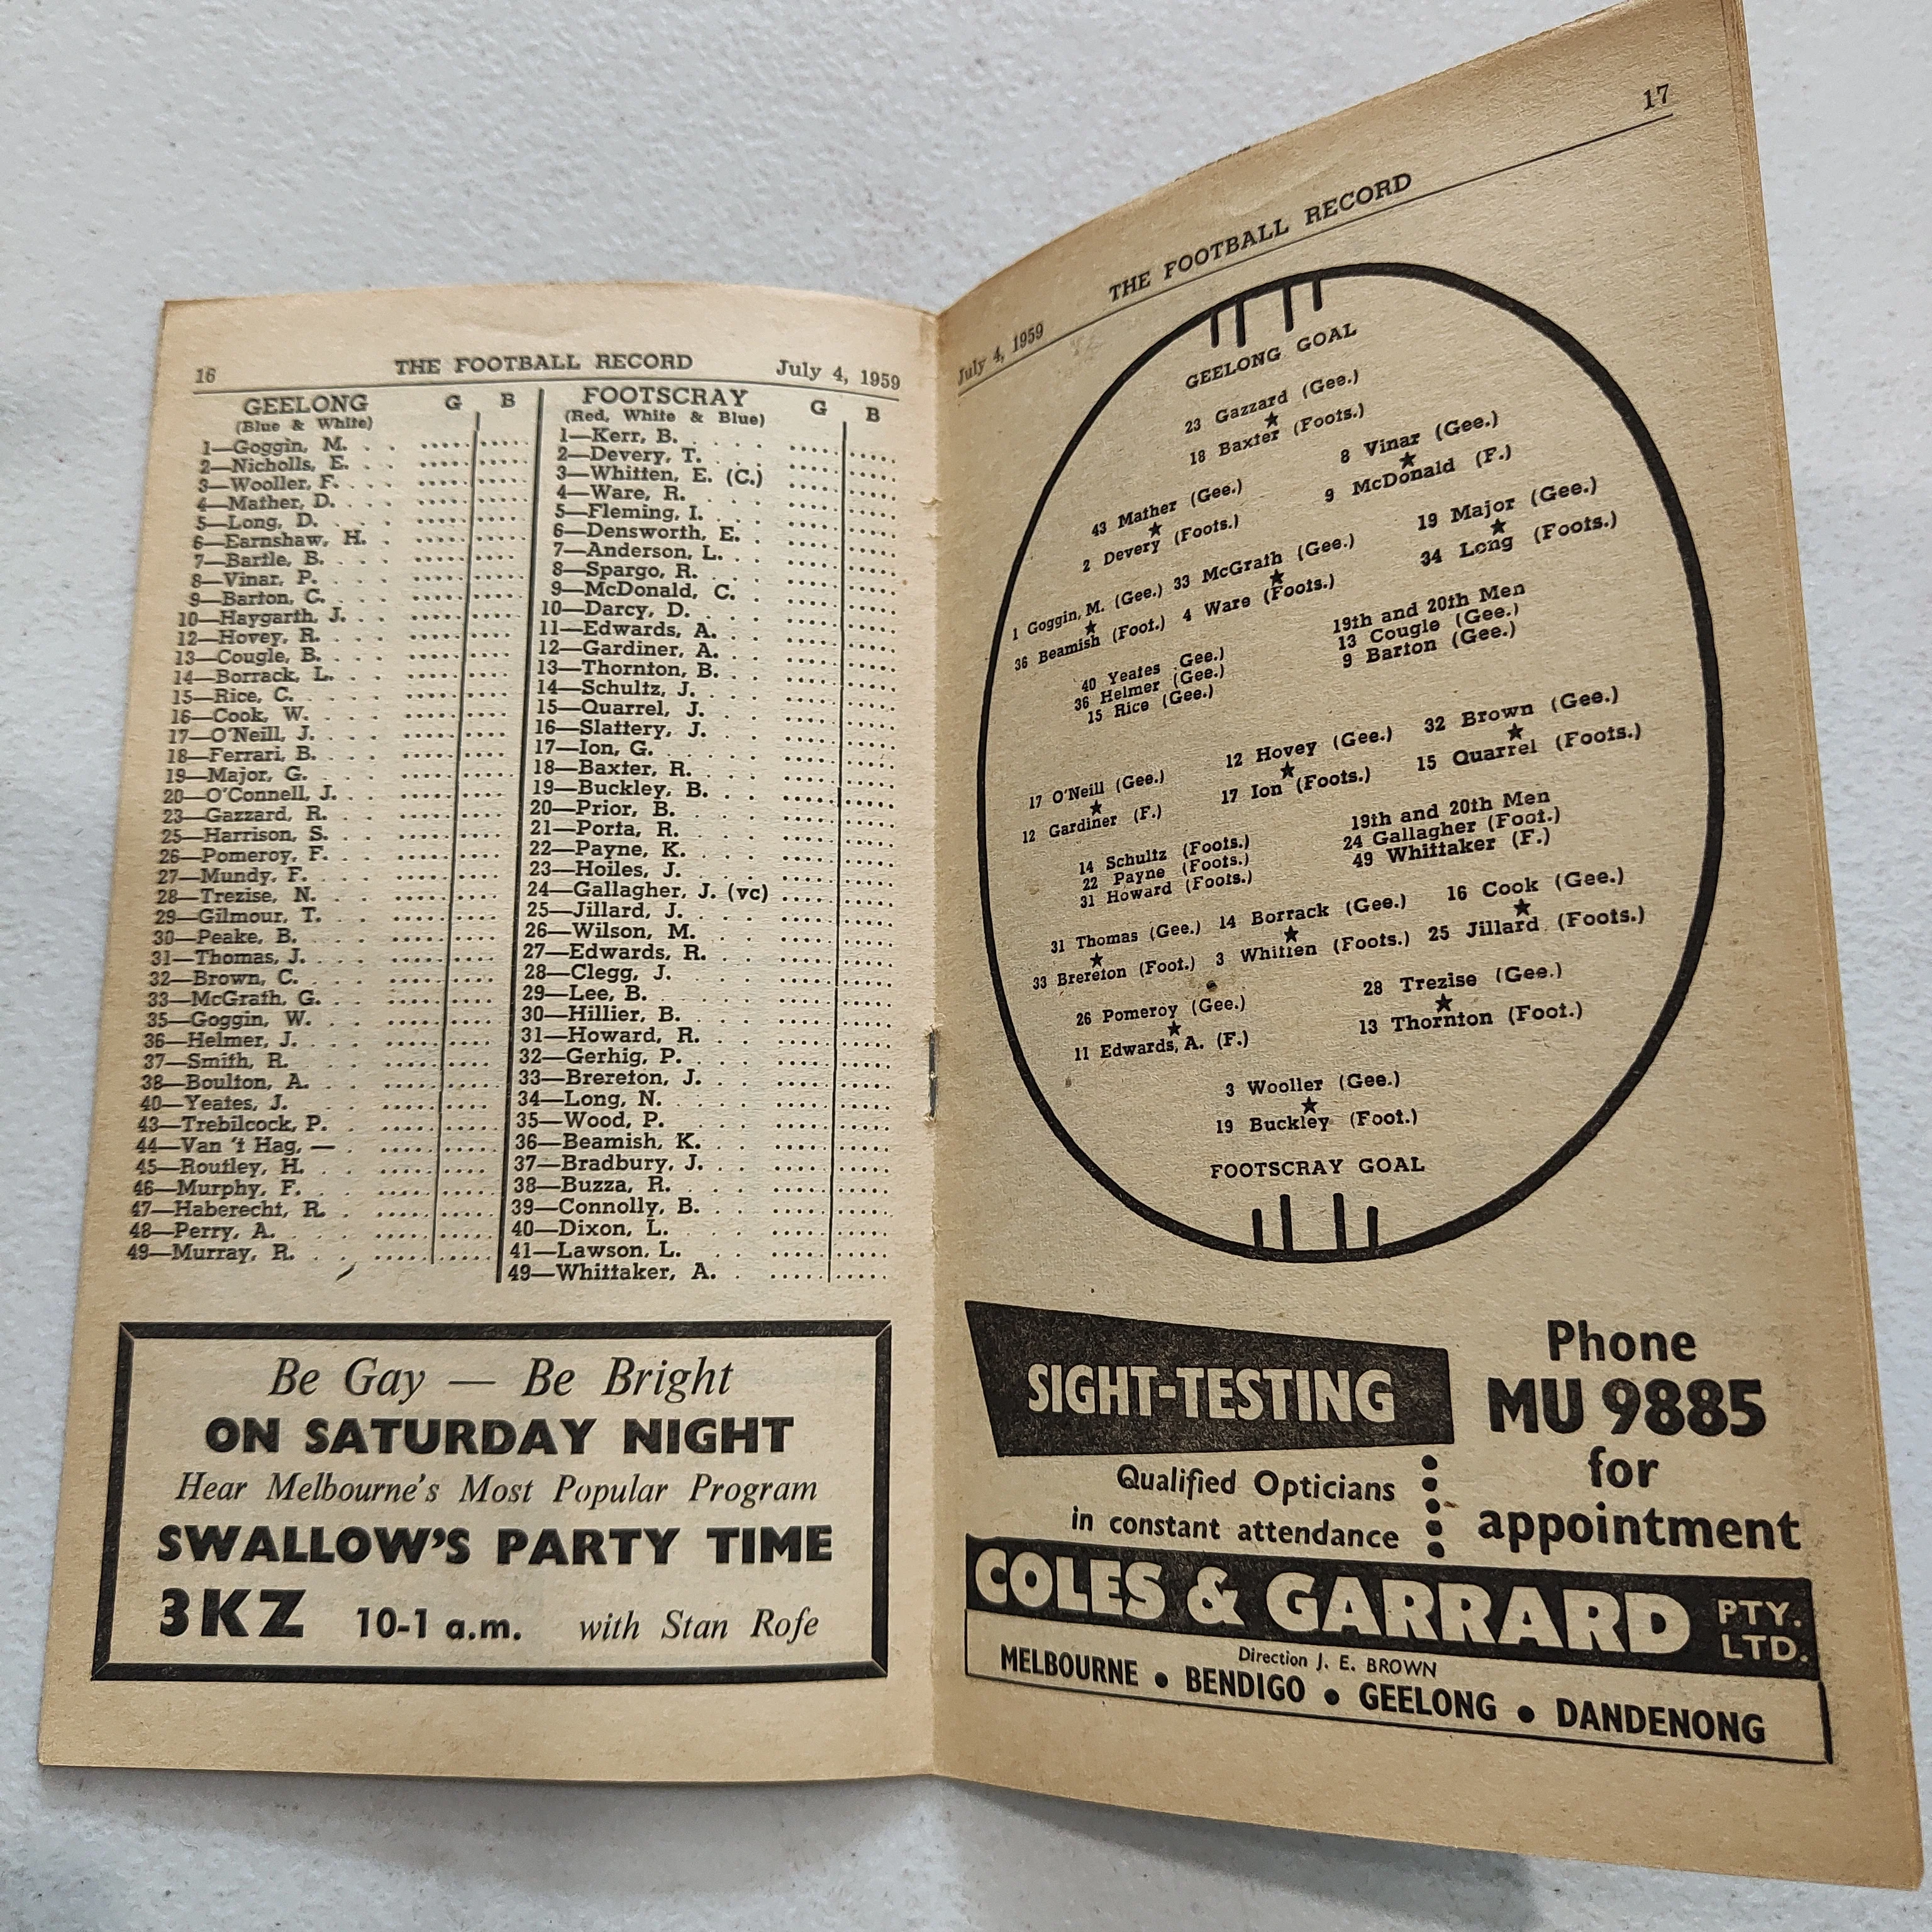 16 THE FOOTBALL RECORD July 4, 1959
GEELONG G B
(Blue & White)
1—Goggin, M.
2—Nicholls, E.
3—Wooller, F.
4—Mather, D.
5—Long, D.
6—Earnshaw, H.
7—Bartle, B.
8—Vinar, P.
9—Barton, C.
10—Haygarth, J.
12—Hovey, R.
13—Cougle, B.
14—Borrack, L.
15—Rice, C.
16—Cook, W.
17—O'Neill, J.
18—Ferrari, B.
19—Major, G.
20—O'Connell, J.
23—Gazzard, R.
25—Harrison, S.
26—Pomeroy, F.
27—Mundy, F.
28—Trezise, N.
29—Gilmour, T.
30—Peake, B.
31—Thomas, J.
32—Brown, C.
33—McGrath, G.
35—Goggin, W.
36—Helmer, J.
37—Smith, R.
38—Boulton, A.
40—Yeates, J.
43—Trebilcock, P.
44—Van 't Hag, —
45—Routley, H.
46—Murphy, F.
47—Haberecht, R.
48—Perry, A.
49—Murray, R.
FOOTSCRAY G B
(Red, White & Blue)
1—Kerr, B.
2—Devery, T.
3—Whitten, E. (C.)
4—Ware, R.
5—Fleming, I.
6—Densworth, E.
7—Anderson, L.
8—Spargo, R.
9—McDonald, C.
10—Darcy, D.
11—Edwards, A.
12—Gardiner, A.
13—Thornton, B.
14—Schultz, J.
15—Quarrel, J.
16—Slattery, J.
17—Ion, G.
18—Baxter, R.
19—Buckley, B.
20—Prior, B.
21—Porta, R.
22—Payne, K.
23—Hoiles, J.
24—Gallagher, J. (vc)
25—Jillard, J.
26—Wilson, M.
27—Edwards, R.
28—Clegg, J.
29—Lee, B.
30—Hillier, B.
31—Howard, R.
32—Gerhig, P.
33—Brereton, J.
34—Long, N.
35—Wood, P.
36—Beamish, K.
37—Bradbury, J.
38—Buzza, R.
39—Connolly, B.
40—Dixon, L.
41—Lawson, L.
49—Whittaker, A.
Be Gay — Be Bright
ON SATURDAY NIGHT
Hear Melbourne's Most Popular Program
SWALLOW'S PARTY TIME
3KZ 10-1 a.m. with Stan Rofe
July 4, 1959 THE FOOTBALL RECORD 17
GEELONG GOAL
23 Gazzard (Gee.)
18 Baxter (Foots.)
8 Vinar (Gee.)
9 McDonald (F.)
43 Mather (Gee.)
2 Devery (Foots.)
19 Major (Gee.)
34 Long (Foots.)
1 Goggin, M. (Gee.) 33 McGrath (Gee.)
36 Beamish (Foot.) 4 Ware (Foots.)
19th and 20th Men
13 Cougle (Gee.)
9 Barton (Gee.)
40 Yeates Gee.)
36 Helmer (Gee.)
15 Rice (Gee.)
12 Hovey (Gee.) 32 Brown (Gee.)
17 Ion (Foots.) 15 Quarrel (Foots.)
17 O'Neill (Gee.)
12 Gardiner (F.)
19th and 20th Men
24 Gallagher (Foot.)
49 Whittaker (F.)
14 Schultz (Foots.)
22 Payne (Foots.)
31 Howard (Foots.)
31 Thomas (Gee.) 14 Borrack (Gee.) 16 Cook (Gee.)
33 Brereton (Foot.) 3 Whitten (Foots.) 25 Jillard (Foots.)
26 Pomeroy (Gee.) 28 Trezise (Gee.)
11 Edwards, A. (F.) 13 Thornton (Foot.)
3 Wooller (Gee.)
19 Buckley (Foot.)
FOOTSCRAY GOAL
SIGHT-TESTING
Qualified Opticians
in constant attendance
Phone
MU 9885
for
appointment
COLES & GARRARD PTY. LTD.
Direction J. E. BROWN
MELBOURNE • BENDIGO • GEELONG • DANDENONG